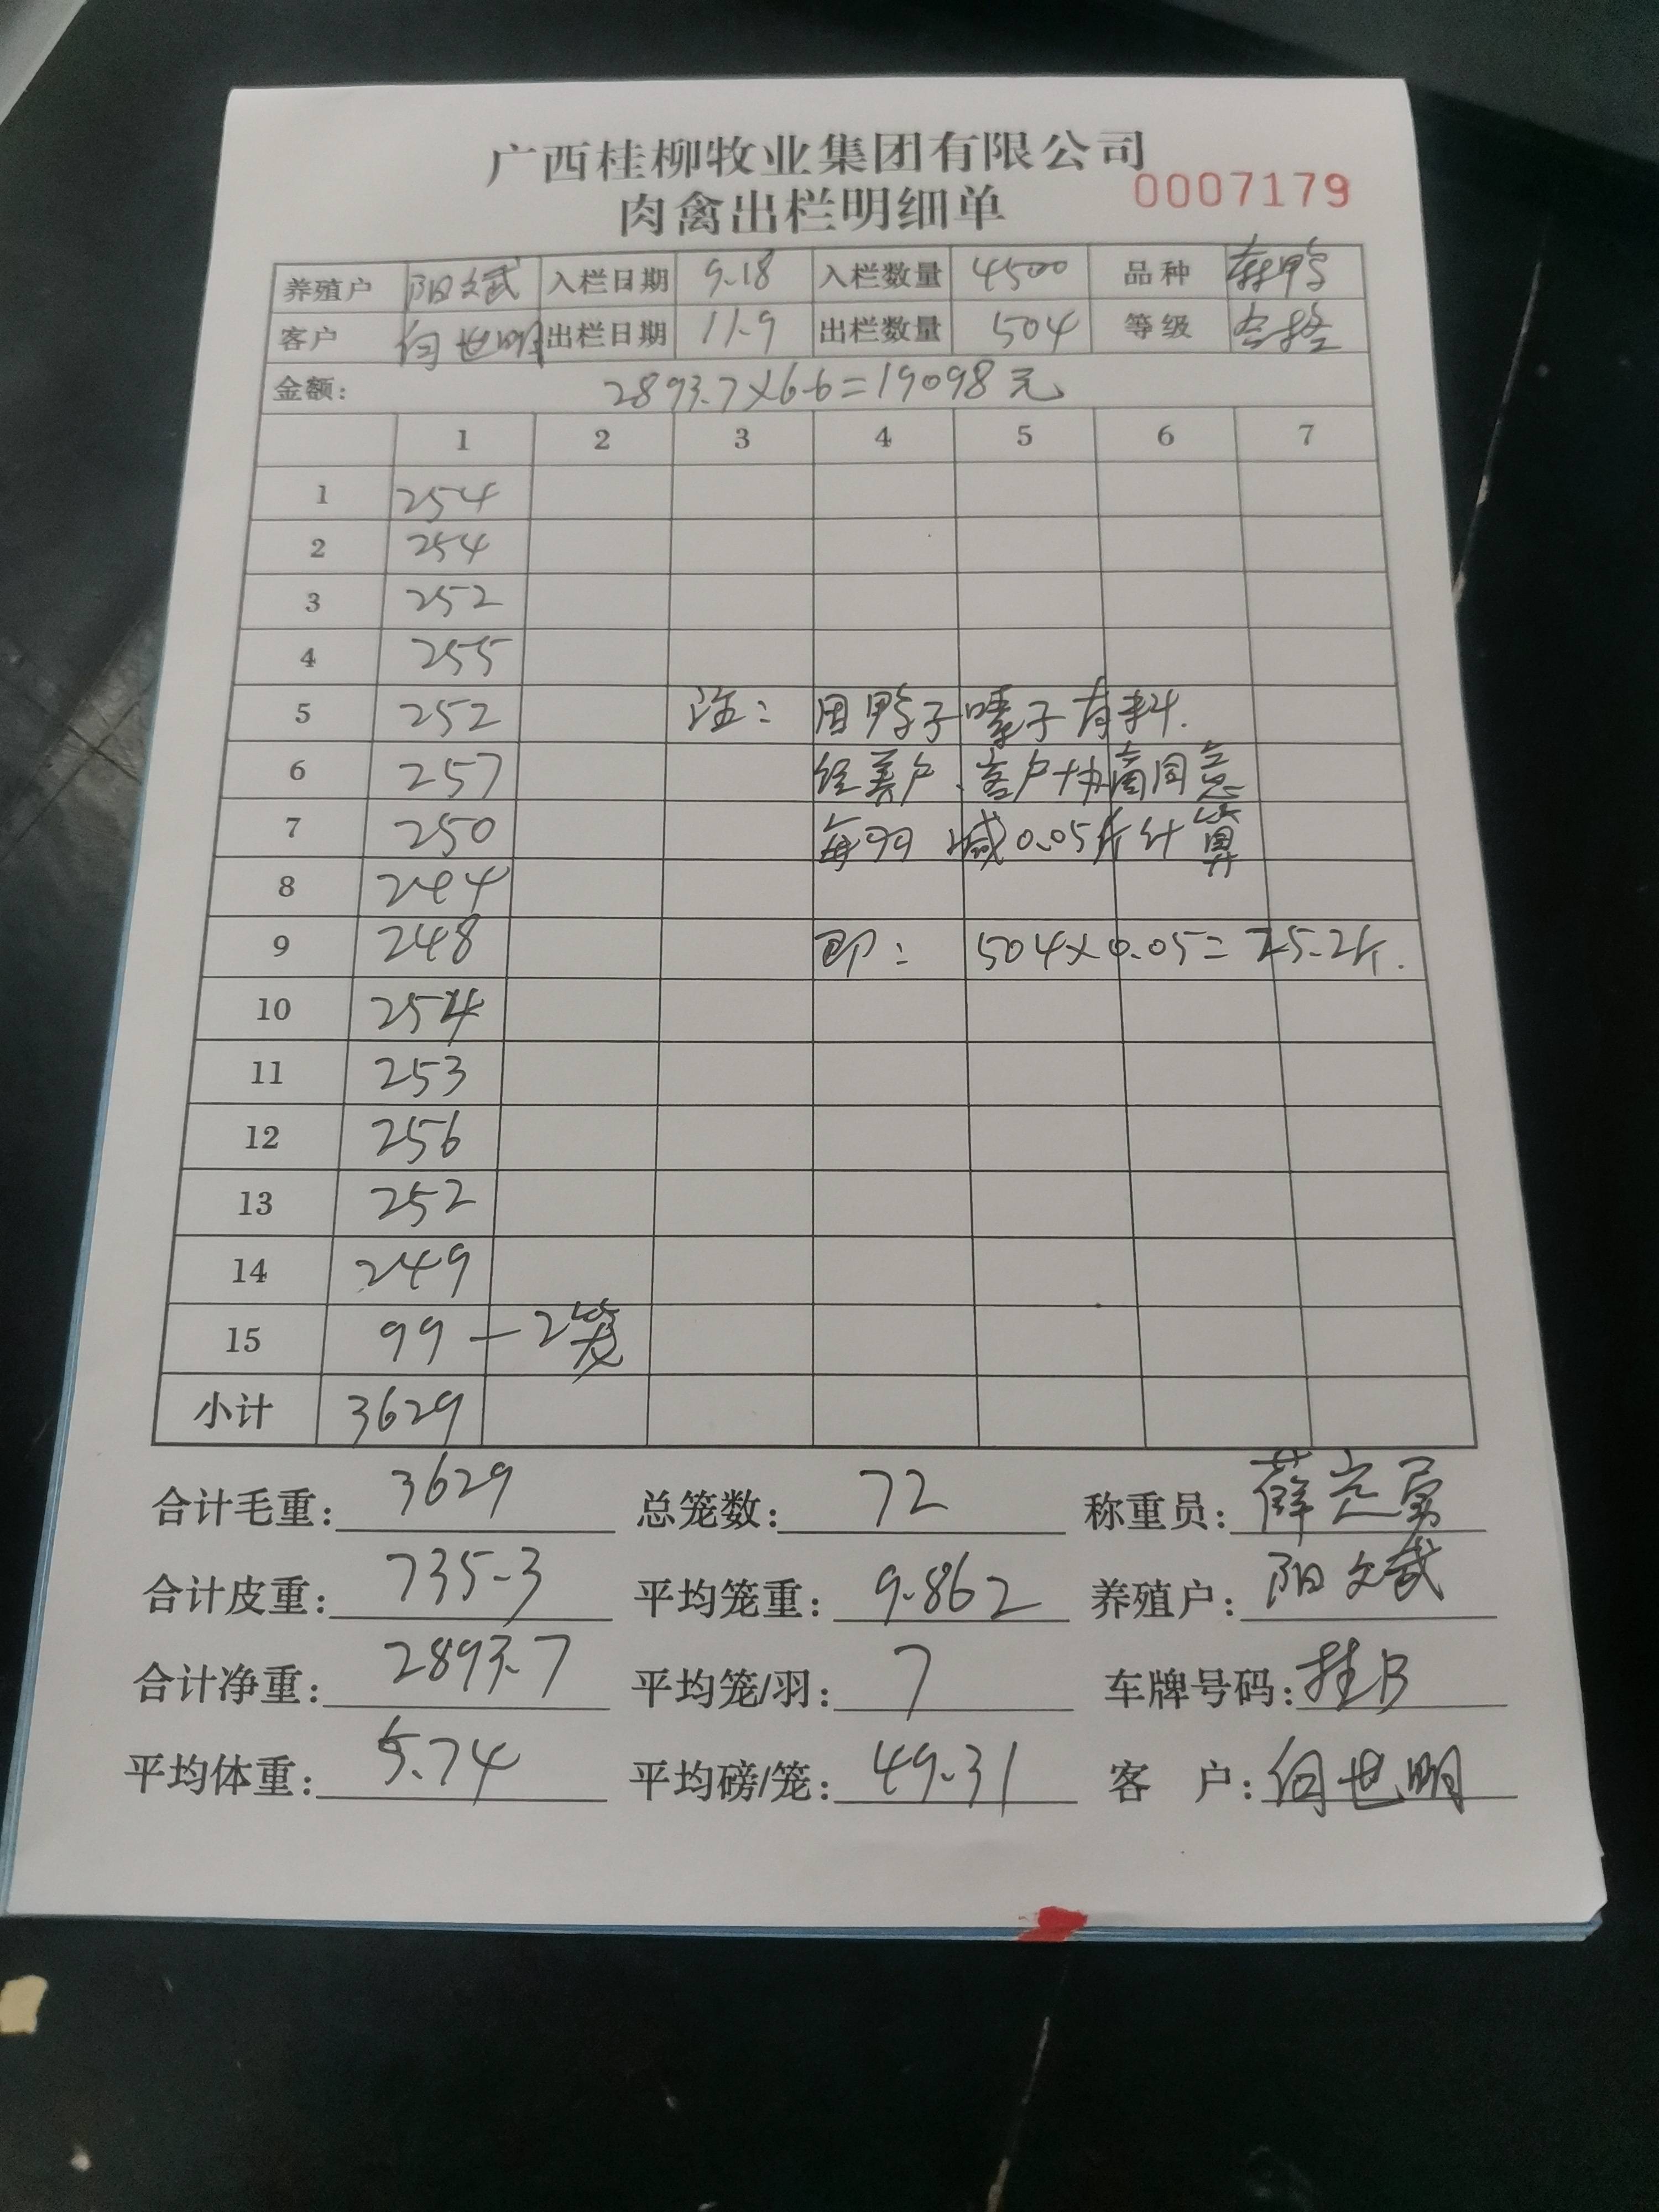 广西桂柳牧业集团有限公司
肉禽出栏明细单 0007179
养殖户 阳文斌 入栏日期 9.18 入栏数量 4500 品种
客户 何世明 出栏日期 11.9 出栏数量 504 等级 合格
金额: 2893.7×6.6=19098元
1 2 3 4 5 6 7
1 254
2 254
3 252
4 255
5 252 注: 因鸭子嗉子有料.
6 257 经养户、客户协商同意
7 250 每羽减0.05斤计算
8 244
9 248 即: 504×0.05=25.2斤.
10 254
11 253
12 256
13 252
14 249
15 99 — 2笼
小计 3629
合计毛重: 3629 总笼数: 72 称重员: 薛定勇
合计皮重: 735.3 平均笼重: 9.862 养殖户: 阳文斌
合计净重: 2893.7 平均笼/羽: 7 车牌号码: 桂B
平均体重: 5.74 平均磅/笼: 49.31 客 户: 何世明